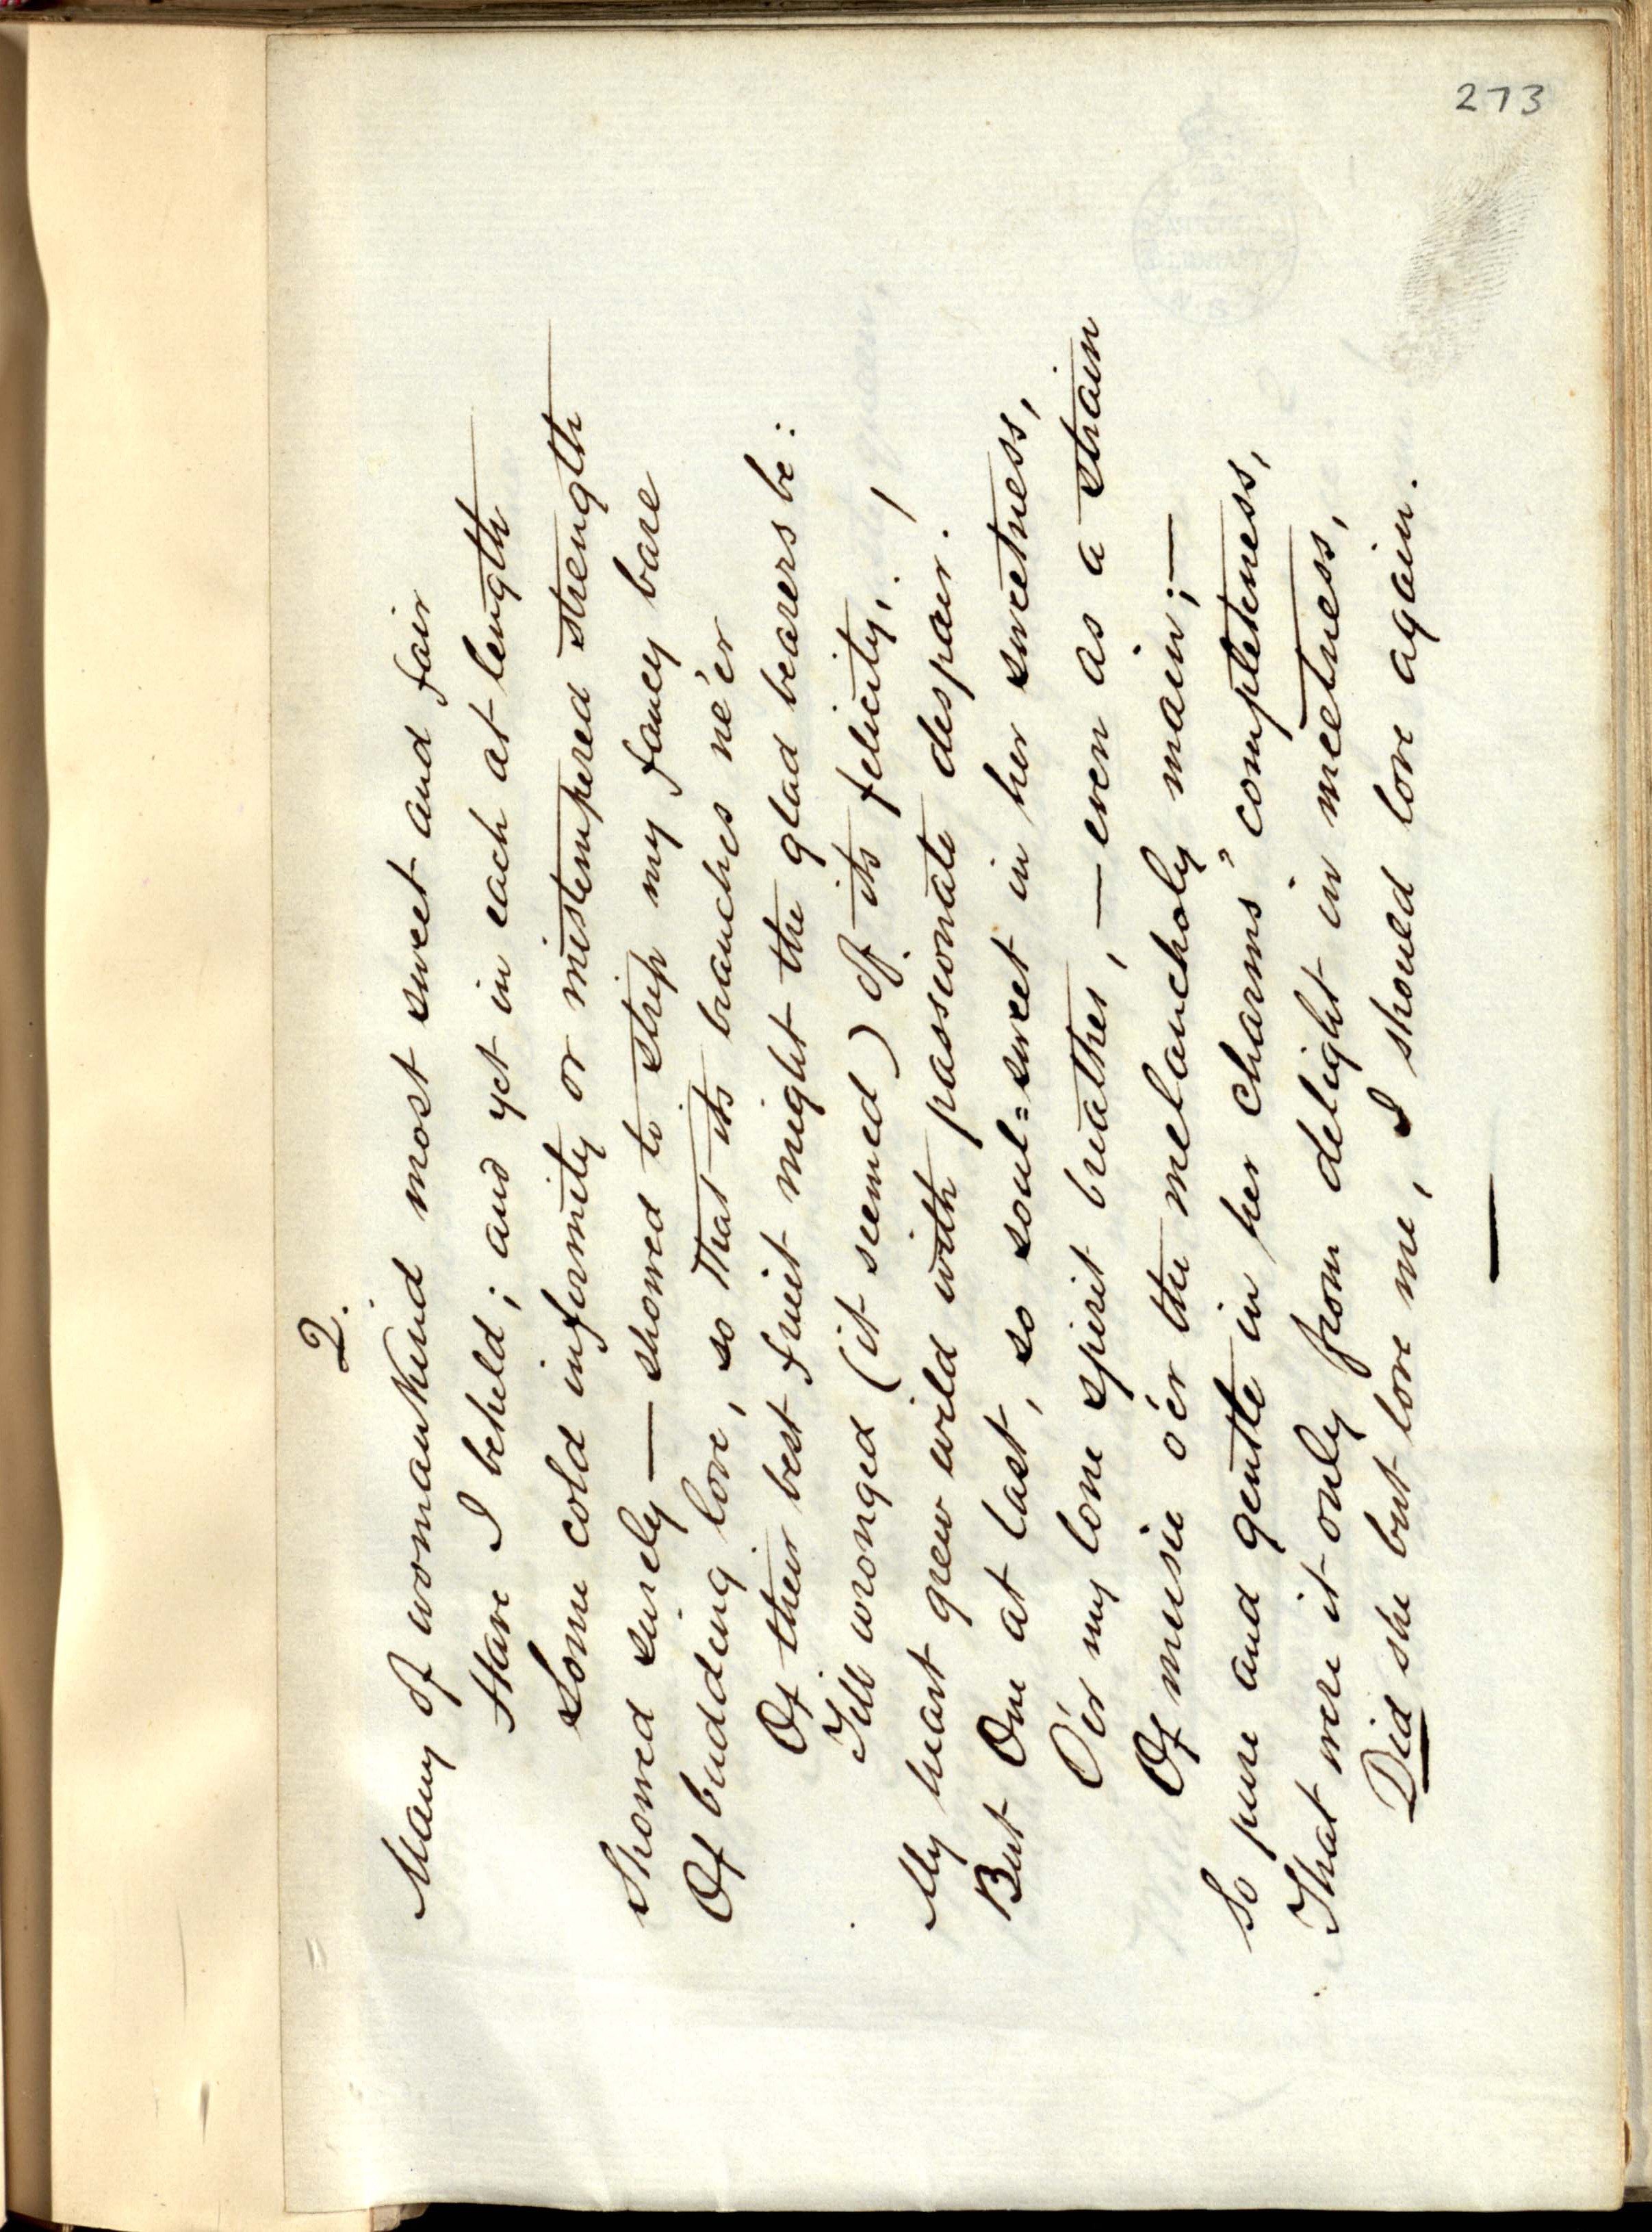 273
2.
Many of womankind most sweet and fair
Have I beheld; and yet in each at length
Some cold infirmity or mistempered strength
Showed surely — showed to strip my fancy bare
Of budding love, so that its branches ne'er
Of their best fruit might the glad bearers be:
Till wronged (it seemed) of its felicity,
My heart grew wild with passionate despair!
But One at last, so soul=sweet in her sweetness,
O'er my lone spirit breathes, — even as a strain
Of music o'er the melancholy main; —
So pure and gentle in her charms" completeness,
That were it only from delight in meetness,
Did she but love me, I should love again.